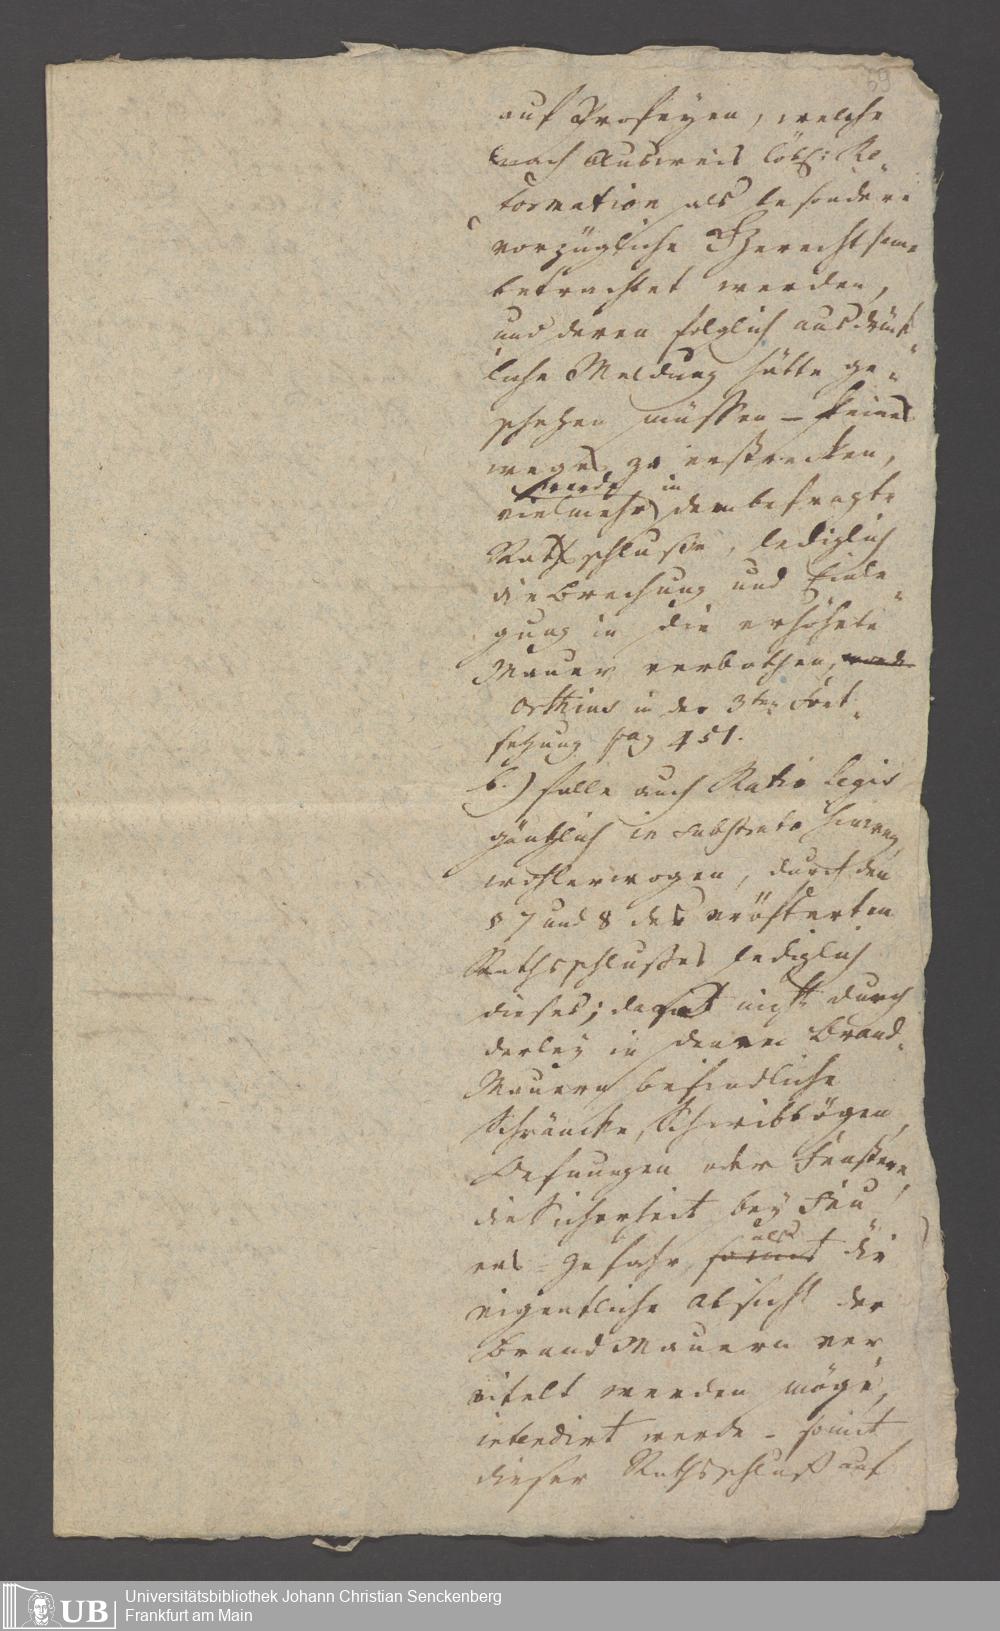 59
auf Profeyen, welche
nach Ausweis löbl: Re-
formation als besondere
vorzügliche Gerechtsame
betrachtet werden,
und deren folglich ausdrück-
liche Meldung hätte ge-
schehen müssen – keines
weges zu erstrecken,
werde in
vielmehr dem besagte
Rathschlusse, lediglich
die Brechung und Einle-
gung in die erhöhete
Mauer verbothen,
Orthius in der 3ten Fort-
setzung pag 451.
b.) falle auch Ratio Legis
gäntzlich in substrato hinweg,
wohlerwogen, durch den
§ 7 und 8 des eröfterten
Rathsschlusses lediglich
dieses; damit nicht durch
derley in denen Brand-
Mauern befindliche
Schräncke, Schwibbögen,
Oefnungen oder Fenstere,
die Sicherheit bey Feu
ers-Gefahr, somit die
als
eigentliche Absicht der
Brand Mauern ver
eitelt werden möge,
intendirt werde – somit
dieser Rathsschluß auf
Universitätsbibliothek Johann Christian Senckenberg
Frankfurt am Main
UB